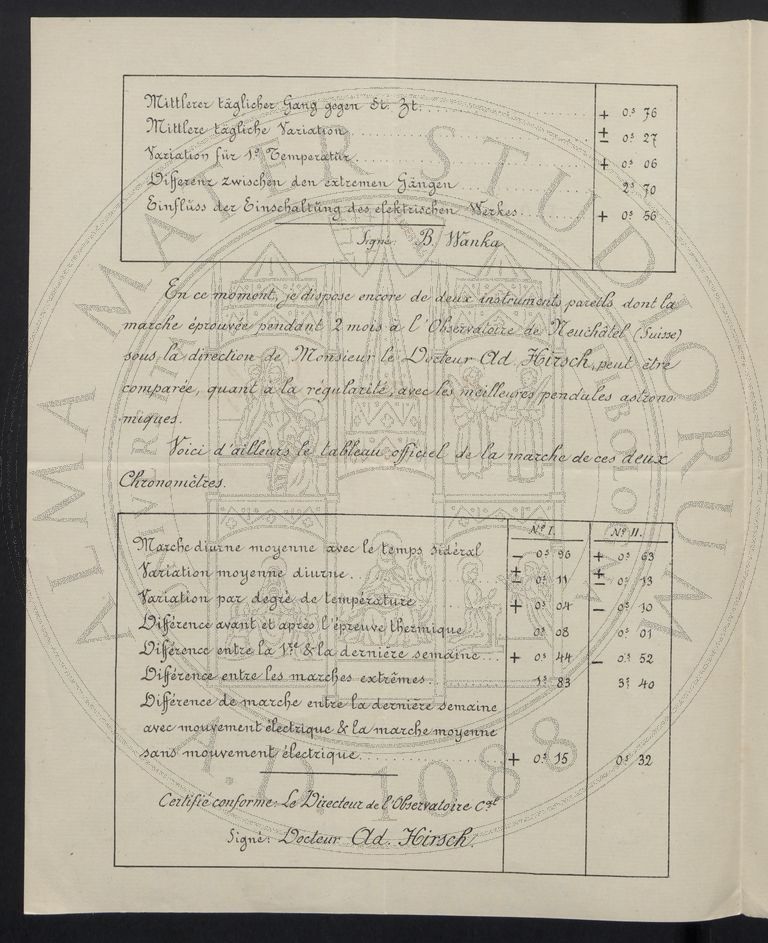 Mittlerer täglicher Gang gegen St. Zt. + 0ˢ 76
Mittlere tägliche Variation ± 0ˢ 27
Variation für 1° Temperatur + 0ˢ 06
Differenz zwischen den extremen Gängen 2ˢ 70
Einfluss der Einschaltung des elektrischen Werkes + 0ˢ 56
Signé: B. Wanka
En ce moment, je dispose encore de deux instruments pareils dont la
marche éprouvée pendant 2 mois à l'Observatoire de Neuchâtel (Suisse)
sous la direction de Monsieur le Docteur Ad. Hirsch, peut être
comparée, quant à la régularité, avec les meilleures pendules astrono-
miques.
Voici d'ailleurs le tableau officiel de la marche de ces deux
Chronomètres.
Nº I. Nº II.
Marche diurne moyenne avec le temps sidéral – 0ˢ 96 + 0ˢ 63
Variation moyenne diurne ± 0ˢ 11 ± 0ˢ 13
Variation par degré de température + 0ˢ 04 – 0ˢ 10
Différence avant et après l'épreuve thermique 0ˢ 08 0ˢ 01
Différence entre la 1re & la dernière semaine + 0ˢ 44 – 0ˢ 52
Différence entre les marches extrêmes 1ˢ 83 3ˢ 40
Différence de marche entre la dernière semaine
avec mouvement électrique & la marche moyenne
sans mouvement électrique + 0ˢ 15 0ˢ 32
Certifié conforme: Le Directeur de l'Observatoire Cal
Signé: Docteur Ad. Hirsch.
ALMA MATER STUDIORUM
A.D. 1088